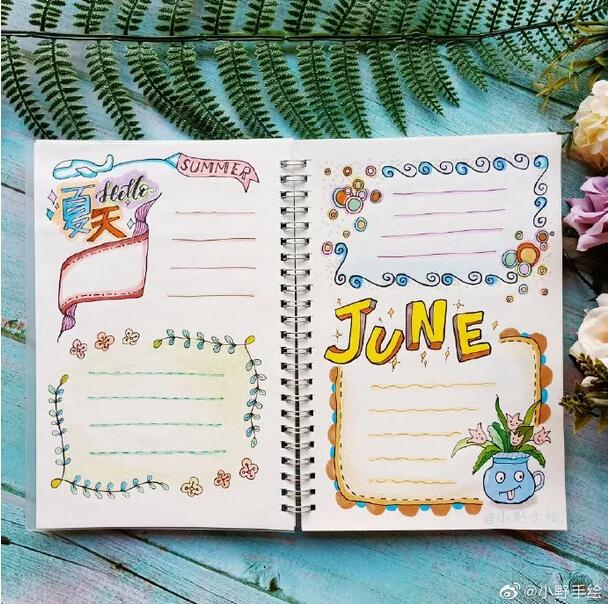 SUMMER
Hello
夏
天
JUNE
@小野手绘
@小野手绘